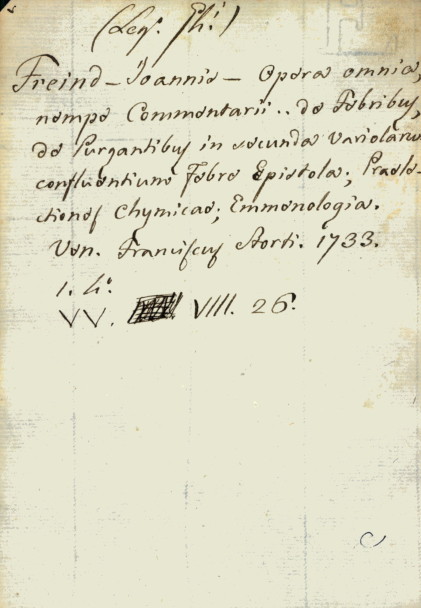 (Leg. Phi.)
Freind - Joannis - Opera omnia,
nempe Commentarii .. de Febribus,
de Purgantibus in secunda Variolaru
confluentium Febre Epistola; Praele-
ctiones Chymicae; Emmenologia.
Ven. Franciscus Storti. 1733.
1. 4°.
VV. VIII. 26.